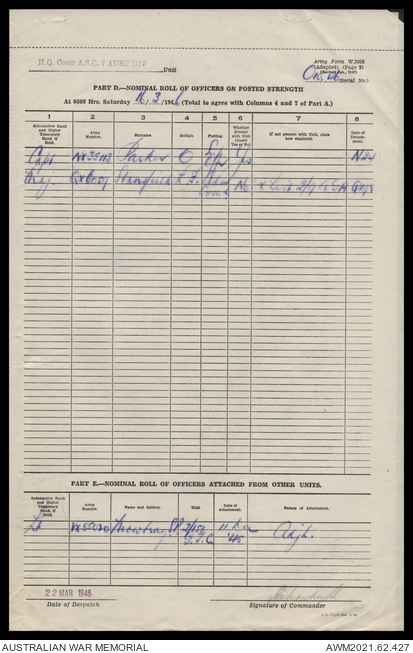 H.Q. Comd A.S.C. 7 AUST DIV
Unit
Army Form W.3008
(Adapted) (Page 2)
(Serial No.)
PART D.—NOMINAL ROLL OF OFFICERS ON POSTED STRENGTH
At 0600 Hrs. Saturday 16/3/1946 (Total to agree with Columns 4 and 7 of Part A.)
1 2 3 4 5 6 7 8
Substantive Rank and Higher Temporary Rank if Held. Army Number. Surname. Initials. Posting. Whether present with Unit (Insert Yes or No) If not present with Unit, state how employed. Date of Detachment.
Capt Parker O Yes
Maj. Stansfield No X List 2/9 AGH
PART E.—NOMINAL ROLL OF OFFICERS ATTACHED FROM OTHER UNITS.
Substantive Rank and Higher Temporary Rank, if Held. Army Number. Name and Initials. Unit. Date of Attachment. Nature of Attachment.
Lt 11 Dec Adjt.
'45
22 MAR 1946
Date of Despatch Signature of Commander
AUSTRALIAN WAR MEMORIAL AWM2021.62.427